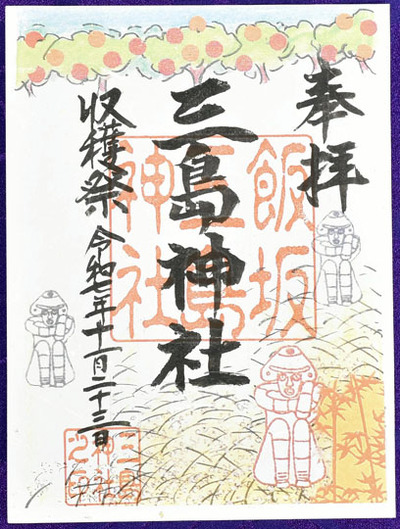 奉拝
三島神社
収穫祭 令和七年十一月二十三日
飯坂
三島
神社
三島
神社
之印